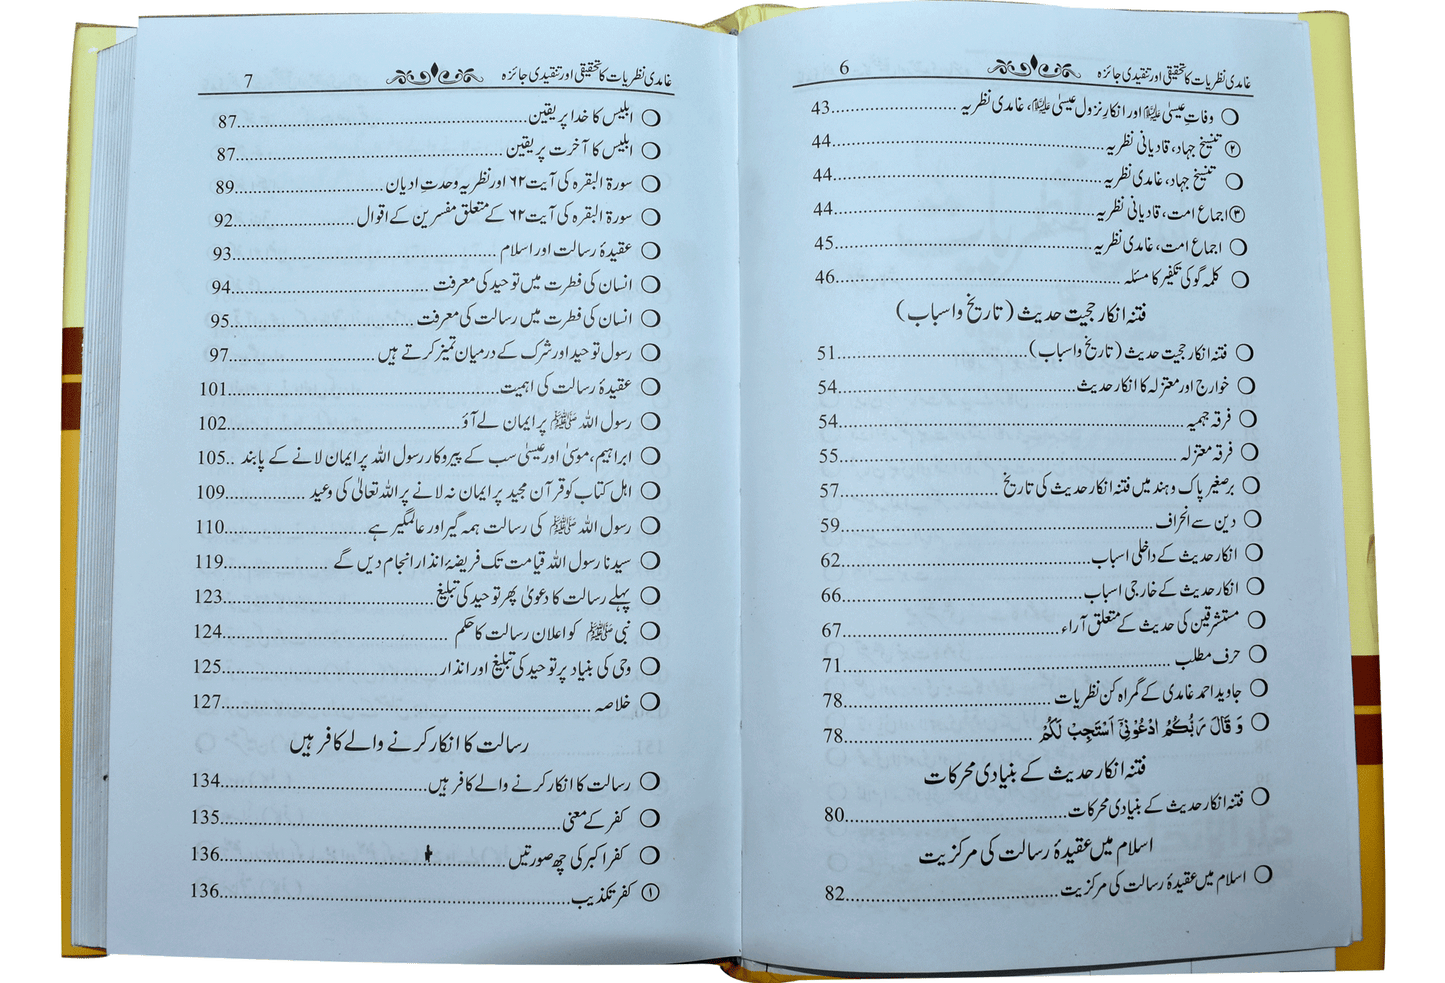 غامدی نظریات کا تحقیقی اور تنقیدی جائزہ 6
○ وفاتِ عیسیٰ ﷤ اور انکارِ نزول عیسیٰ ﷤، غامدی نظریہ ........ 43
② تنسیخ جہاد، قادیانی نظریہ ........ 44
○ تنسیخ جہاد، غامدی نظریہ ........ 44
③ اجماع امت، قادیانی نظریہ ........ 44
○ اجماع امت، غامدی نظریہ ........ 45
○ کلمہ گو کی تکفیر کا مسئلہ ........ 46
فتنہ انکار حجیت حدیث (تاریخ و اسباب)
○ فتنہ انکار حجیت حدیث (تاریخ و اسباب) ........ 51
○ خوارج اور معتزلہ کا انکار حدیث ........ 54
○ فرقہ جہمیہ ........ 54
○ فرقہ معتزلہ ........ 55
○ برصغیر پاک و ہند میں فتنہ انکار حدیث کی تاریخ ........ 57
○ دین سے انحراف ........ 59
○ انکار حدیث کے داخلی اسباب ........ 62
○ انکار حدیث کے خارجی اسباب ........ 66
○ مستشرقین کی حدیث کے متعلق آراء ........ 67
○ حرف مطلب ........ 71
○ جاوید احمد غامدی کے گمراہ کن نظریات ........ 78
○ وَ قَالَ رَبُّكُمُ ادْعُوْنِيْۤ اَسْتَجِبْ لَكُمْ ........ 78
فتنہ انکار حدیث کے بنیادی محرکات
○ فتنہ انکار حدیث کے بنیادی محرکات ........ 80
اسلام میں عقیدۂ رسالت کی مرکزیت
○ اسلام میں عقیدۂ رسالت کی مرکزیت ........ 82
غامدی نظریات کا تحقیقی اور تنقیدی جائزہ 7
○ ابلیس کا خدا پر یقین ........ 87
○ ابلیس کا آخرت پر یقین ........ 87
○ سورۃ البقرہ کی آیت ۶۲ اور نظریہ وحدتِ ادیان ........ 89
○ سورۃ البقرہ کی آیت ۶۲ کے متعلق مفسرین کے اقوال ........ 92
○ عقیدۂ رسالت اور اسلام ........ 93
○ انسان کی فطرت میں توحید کی معرفت ........ 94
○ انسان کی فطرت میں رسالت کی معرفت ........ 95
○ رسول توحید اور شرک کے درمیان تمیز کرتے ہیں ........ 97
○ عقیدۂ رسالت کی اہمیت ........ 101
○ رسول اللہ ﷺ پر ایمان لے آؤ ........ 102
○ ابراہیم، موسیٰ اور عیسیٰ سب کے پیروکار رسول اللہ پر ایمان لانے کے پابند .. 105
○ اہل کتاب کو قرآن مجید پر ایمان نہ لانے پر اللہ تعالیٰ کی وعید ........ 109
○ رسول اللہ ﷺ کی رسالت ہمہ گیر اور عالمگیر ہے ........ 110
○ سیدنا رسول اللہ قیامت تک فریضۂ انذار انجام دیں گے ........ 119
○ پہلے رسالت کا دعویٰ پھر توحید کی تبلیغ ........ 123
○ نبی ﷺ کو اعلان رسالت کا حکم ........ 124
○ وحی کی بنیاد پر توحید کی تبلیغ اور انذار ........ 125
○ خلاصہ ........ 127
رسالت کا انکار کرنے والے کافر ہیں
○ رسالت کا انکار کرنے والے کافر ہیں ........ 134
○ کفر کے معنی ........ 135
○ کفر اکبر کی چھ صورتیں ........ 136
① کفر تکذیب ........ 136